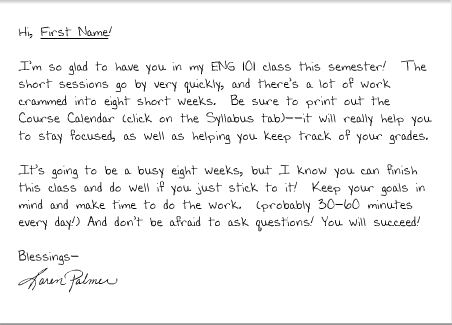 Hi, First Name!
I'm so glad to have you in my ENG 101 class this semester! The
short sessions go by very quickly, and there's a lot of work
crammed into eight short weeks. Be sure to print out the
Course Calendar (click on the Syllabus tab)--it will really help you
to stay focused, as well as helping you keep track of your grades.
It's going to be a busy eight weeks, but I know you can finish
this class and do well if you just stick to it! Keep your goals in
mind and make time to do the work. (probably 30-60 minutes
every day!) And don't be afraid to ask questions! You will succeed!
Blessings-
Karen Palmer